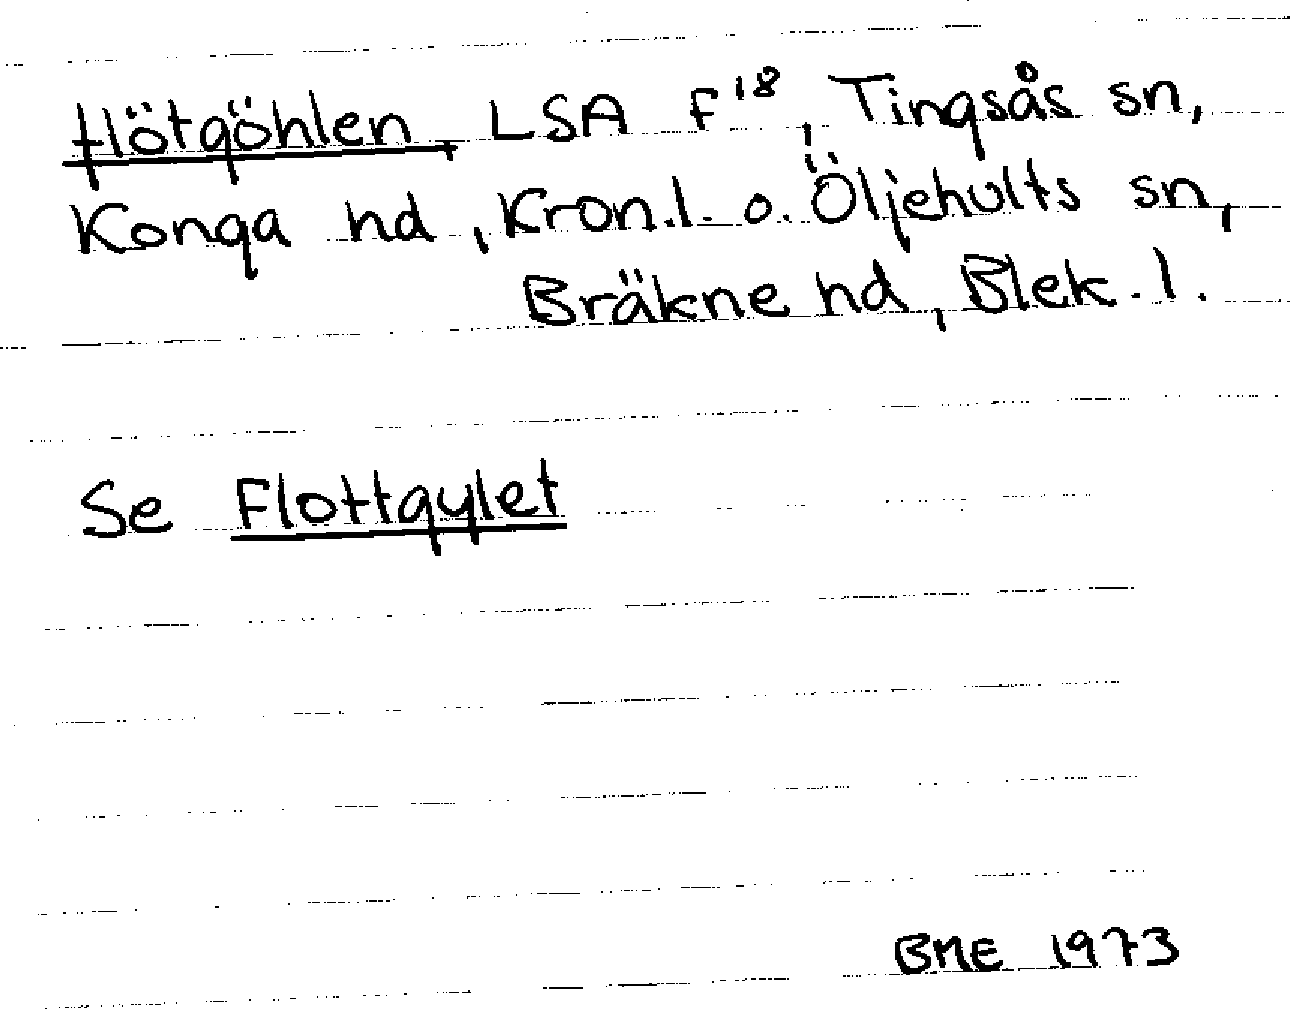 flötgöhlen, LSA F18, Tingsås sn,
Konga hd, Kron.l. o. Öljehults sn,
Bräkne hd, Blek.l.
Se Flottgylet
BME 1973